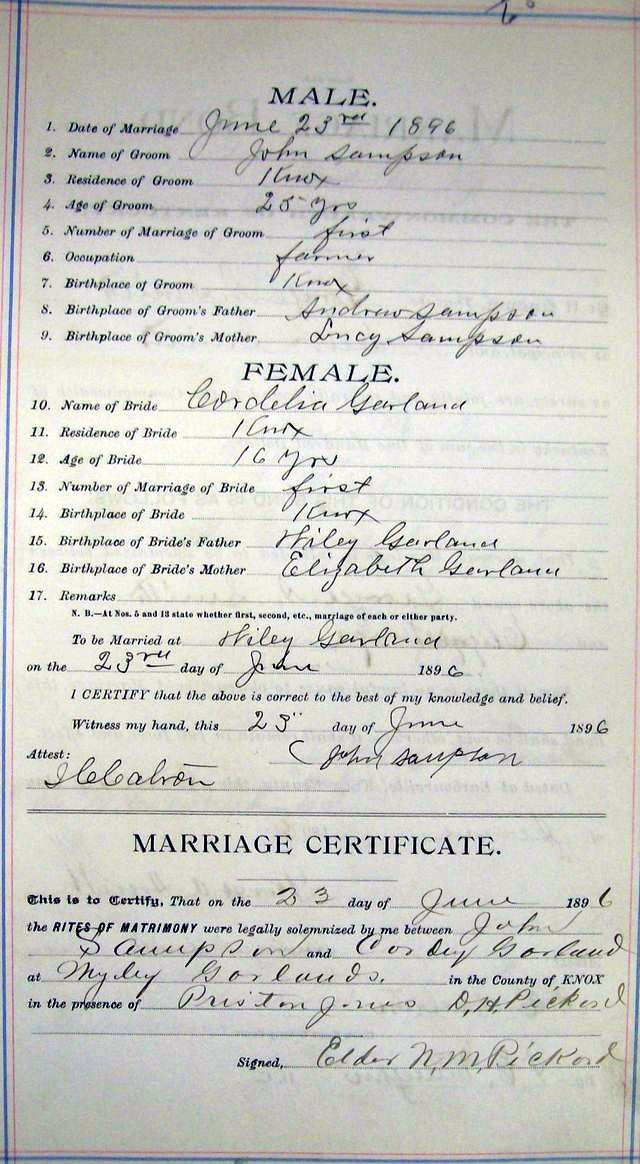 MALE.
1. Date of Marriage June 23rd 1896
2. Name of Groom John Sampson
3. Residence of Groom Knox
4. Age of Groom 25 yrs
5. Number of Marriage of Groom first
6. Occupation farmer
7. Birthplace of Groom Knox
8. Birthplace of Groom's Father Andrew Sampson
9. Birthplace of Groom's Mother Lucy Sampson
FEMALE.
10. Name of Bride Cordelia Garland
11. Residence of Bride Knox
12. Age of Bride 16 yrs
13. Number of Marriage of Bride first
14. Birthplace of Bride Knox
15. Birthplace of Bride's Father Wiley Garland
16. Birthplace of Bride's Mother Elizabeth Garland
17. Remarks
N. B.—At Nos. 5 and 13 state whether first, second, etc., marriage of each or either party.
To be Married at Wiley Garland
on the 23rd day of June 1896.
I CERTIFY that the above is correct to the best of my knowledge and belief.
Witness my hand, this 23 day of June 1896
John Sampson
Attest:
MARRIAGE CERTIFICATE.
This is to Certify, That on the 23 day of June 1896
the RITES OF MATRIMONY were legally solemnized by me between John
Sampson and Cordey Garland
at Wyley Garlands. in the County of KNOX
in the presence of Priston Jones D. H. Pickord
Signed, Elder N. M. Pickord